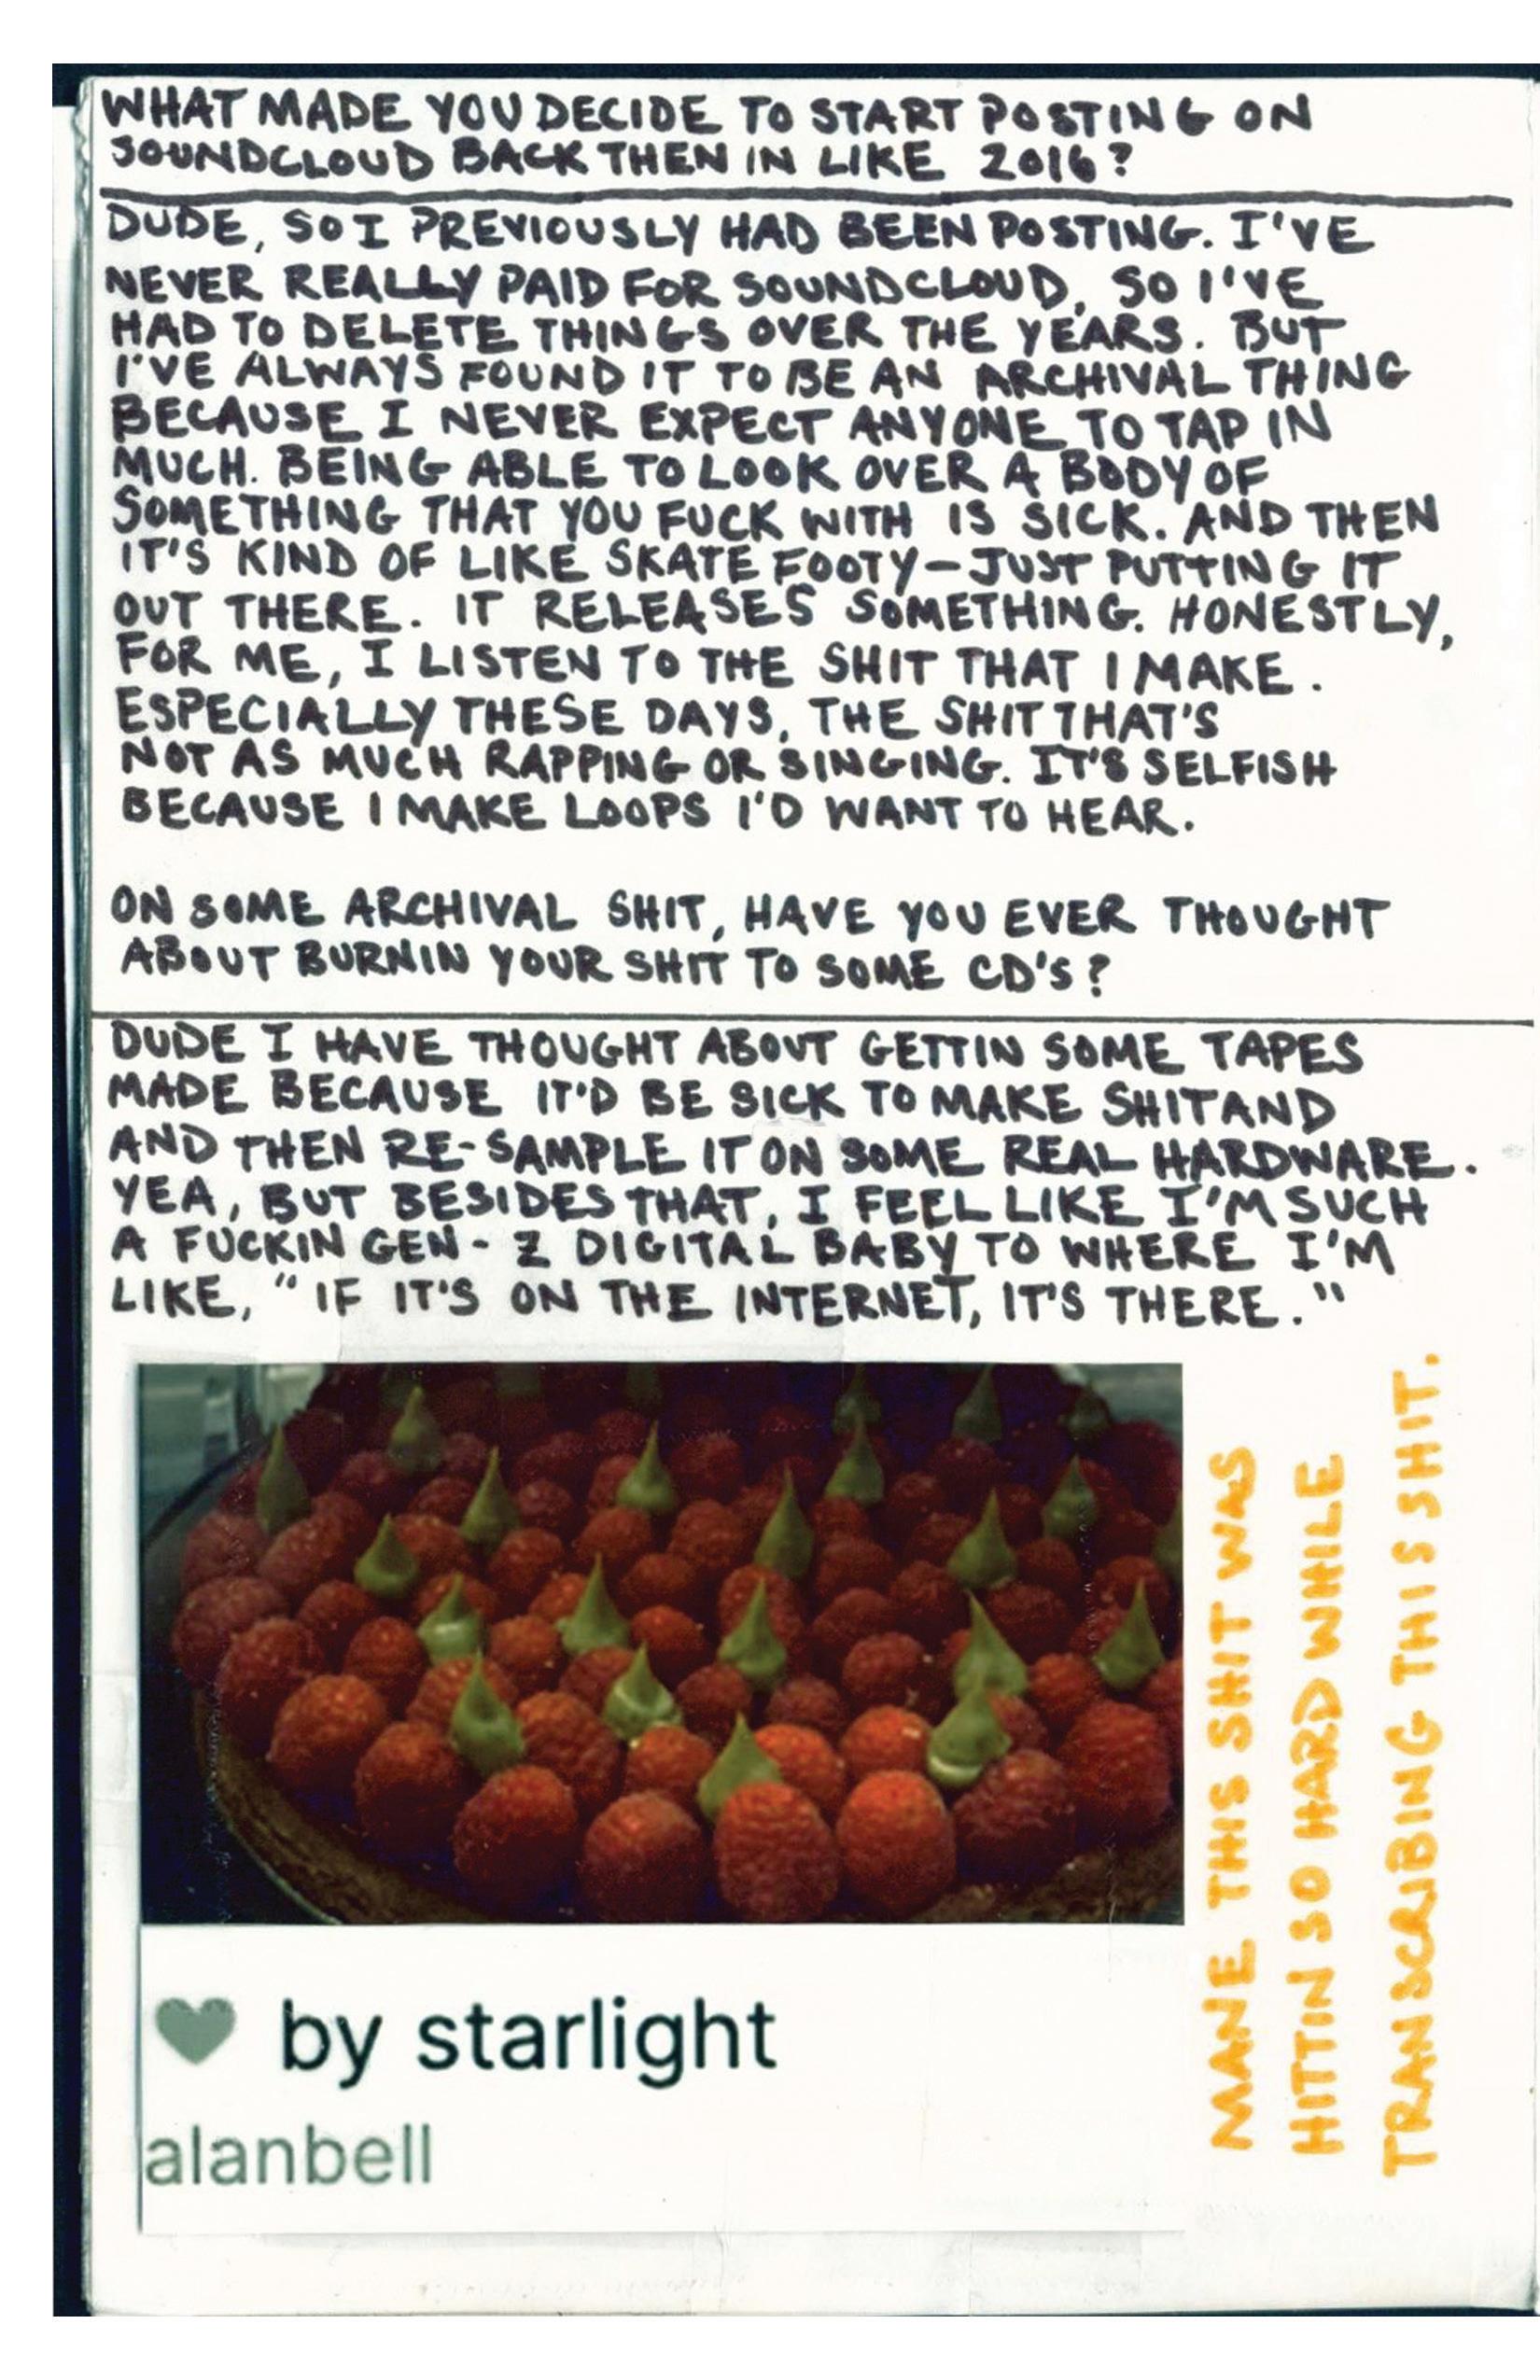 WHAT MADE YOU DECIDE TO START POSTING ON
SOUNDCLOUD BACK THEN IN LIKE 2016?
DUDE, SO I PREVIOUSLY HAD BEEN POSTING. I'VE
NEVER REALLY PAID FOR SOUNDCLOUD, SO I'VE
HAD TO DELETE THINGS OVER THE YEARS. BUT
I'VE ALWAYS FOUND IT TO BE AN ARCHIVAL THING
BECAUSE I NEVER EXPECT ANYONE TO TAP IN
MUCH. BEING ABLE TO LOOK OVER A BODY OF
SOMETHING THAT YOU FUCK WITH IS SICK. AND THEN
IT'S KIND OF LIKE SKATE FOOTY—JUST PUTTING IT
OUT THERE. IT RELEASES SOMETHING. HONESTLY,
FOR ME, I LISTEN TO THE SHIT THAT I MAKE.
ESPECIALLY THESE DAYS, THE SHIT THAT'S
NOT AS MUCH RAPPING OR SINGING. IT'S SELFISH
BECAUSE I MAKE LOOPS I'D WANT TO HEAR.
ON SOME ARCHIVAL SHIT, HAVE YOU EVER THOUGHT
ABOUT BURNIN YOUR SHIT TO SOME CD'S?
DUDE I HAVE THOUGHT ABOUT GETTIN SOME TAPES
MADE BECAUSE IT'D BE SICK TO MAKE SHIT AND
AND THEN RE-SAMPLE IT ON SOME REAL HARDWARE.
YEA, BUT BESIDES THAT, I FEEL LIKE I'M SUCH
A FUCKIN GEN-Z DIGITAL BABY TO WHERE I'M
LIKE, "IF IT'S ON THE INTERNET, IT'S THERE."
MANE THIS SHIT WAS
HITTIN SO HARD WHILE
TRANSCRIBING THIS SHIT.
by starlight
alanbell